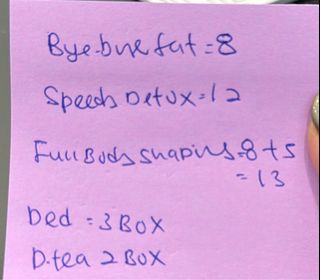 Bye-bye fat = 8
Speeds Detox = 12
Full Body Shaping = 8 + 5
= 13
Ded = 3 BOX
D.tea 2 BOX